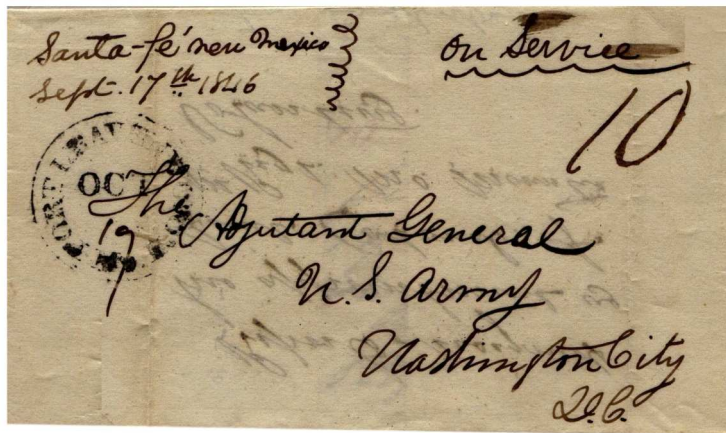 Santa-fé new Mexico
Sept. 17th 1846
on Service
10
FORT LEAVENWORTH
OCT
19
The Adjutant General
U. S. Army
Washington City
D.C.